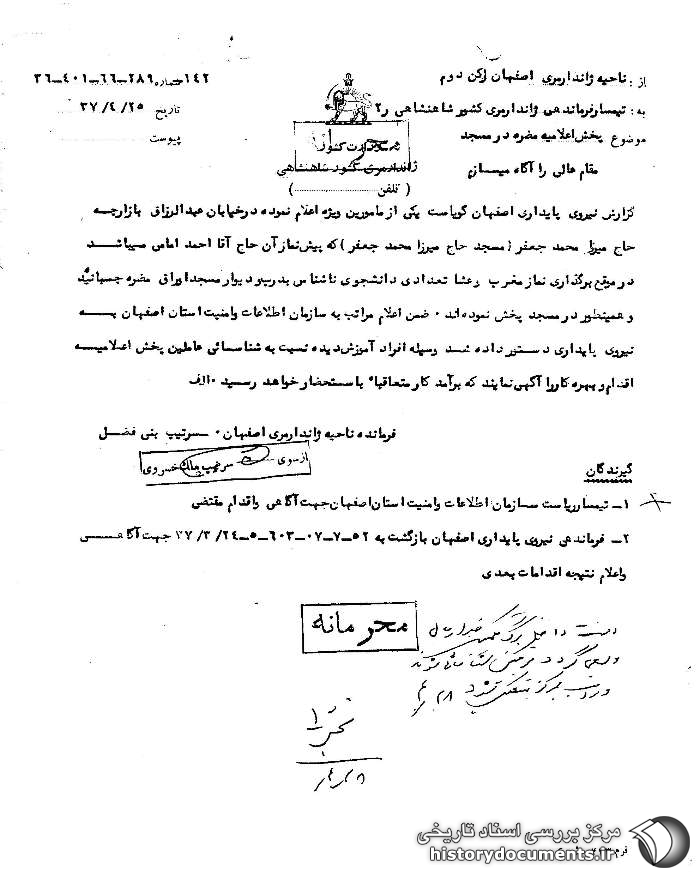 از : ناحیه ژاندارمری اصفهان رکن دوم
به : تیمسار فرماندهی ژاندارمری کشور شاهنشاهی ر۲
موضوع پخش اعلامیه مضره در مسجد
شماره ۱۴۲ـ۲۸۹ـ۶۶ـ۴۰۱ـ۳۶
تاریخ ۳۷/۴/۲۵
پیوست
وزارت کشور
ژاندارمری کشور شاهنشاهی
( تلفن )
محرمانه
مقام عالی را آگاه میسازم
گزارش نیروی پایداری اصفهان گویاست یکی از مامورین ویژه اعلام نموده در خیابان عبدالرزاق بازارچه
حاج میرزا محمد جعفر ( مسجد حاج میرزا محمد جعفر ) که پیش نماز آن حاج آقا احمد امامی میباشد
در موقع برگذاری نماز مغرب و عشا تعدادی دانشجوی ناشناس بدرب و دیوار مسجد اوراق مضره چسبانیده
و همینطور در مسجد پخش نموده اند ۰ ضمن اعلام مراتب به سازمان اطلاعات وامنیت استان اصفهان به
نیروی پایداری دستور داده شد وسیله افراد آموزش دیده نسبت به شناسائی عاملین پخش اعلامیه
اقدام و بهره کار را آگهی نمایند که برآمد کار متعاقبا" باستحضار خواهد رسید ۰ الف
فرمانده ناحیه ژاندارمری اصفهان ۰ ـ سرتیپ بنی فضل
از سوی سرتیپ ملک خسروی
گیرندگان
۱ـ تیمسار ریاست سازمان اطلاعات وامنیت استان اصفهان جهت آگاهی واقدام مقتضی
۲ـ فرماندهی نیروی پایداری اصفهان بازگشت به ۵۲ـ۷ـ۰۷ـ۶۰۳ـ۵ـ۳۷/۳/۲۴ جهت آگاهی
واعلام نتیجه اقدامات بعدی
محرمانه
۲۸/۴
مرکز بررسی اسناد تاریخی
historydocuments.ir